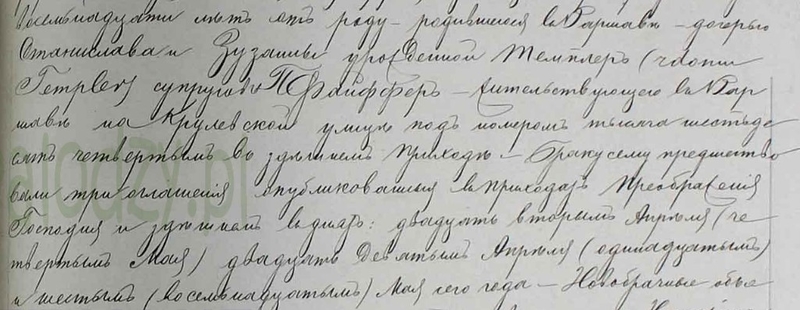 восемнадцати лѣтъ отъ роду – родившеюся въ Варшавѣ – дочерью
Станислава и Зузанны урожденной Темплеръ (z domu
Templer) супруговъ Пфайфферъ – жительствующею въ Вар
шавѣ на Крулевской улицѣ подъ номеромъ тысяча шестьде
сятъ четвертымъ во здѣшнемъ приходѣ – Браку сему предшество
вали три оглашенія опубликованныя въ приходахъ Преображенія
Господня и здѣшнемъ въ дняхъ: двадцать вторымъ Апрѣля (че
твертымъ Мая) двадцать девятымъ Апрѣля (одинадцатымъ)
и шестымъ (восемнадцатымъ) Мая сего года – Новобрачные объя